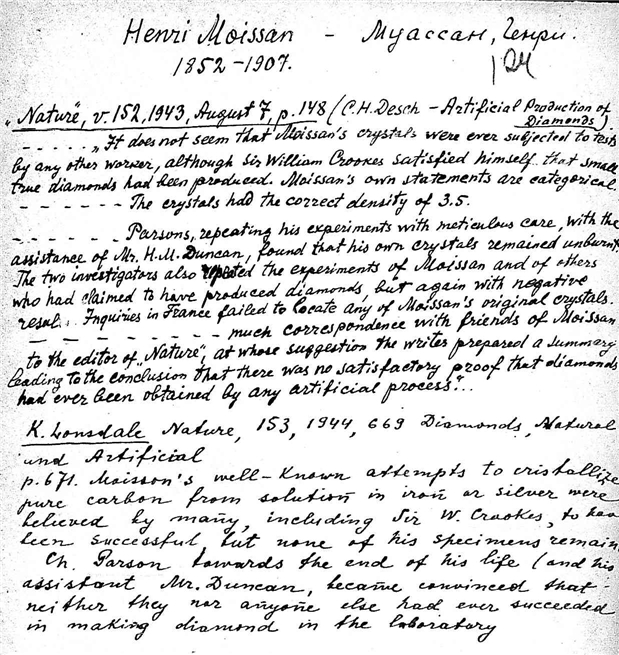 Henri Moissan - Муассан, Генри.
1852-1907.
„Nature", v. 152, 1943, August 7, p. 148 (C.H. Desch - Artificial Production of
Diamonds)
- - - - - „It does not seem that Moissan's crystals were ever subjected to tests
by any other worker, although Sir William Crookes satisfied himself that small
true diamonds had been produced. Moissan's own statements are categorical.
- - - - - - The crystals had the correct density of 3.5.
- - - - - - Parsons, repeating his experiments with meticulous care, with the
assistance of Mr. H.M. Duncan, found that his own crystals remained unburnt
The two investigators also the experiments of Moissan and of others
who had claimed to have produced diamonds, but again with negative
resul.. Inquiries in France failed to locate any of Moissan's original crystals.
- - - - - - - - - much correspondence with friends of Moissan
to the editor of „Nature", at whose suggestion the writer prepared a summary
leading to the conclusion that there was no satisfactory proof that diamonds
had ever been obtained by any artificial process"...
K. Lonsdale Nature, 153, 1944, 669 Diamonds, Natural
und Artificial
p. 671. Moisson's well-known attempts to cristallize
pure carbon from solution in iron or silver were
believed by many, including Sir W. Crookes, to hav
been successful but none of his specimens remain.
Ch. Parson towards the end of his life (and his
assistant Mr. Duncan, became convinced that
neither they nor anyone else had ever succeeded
in making diamond in the laboratory